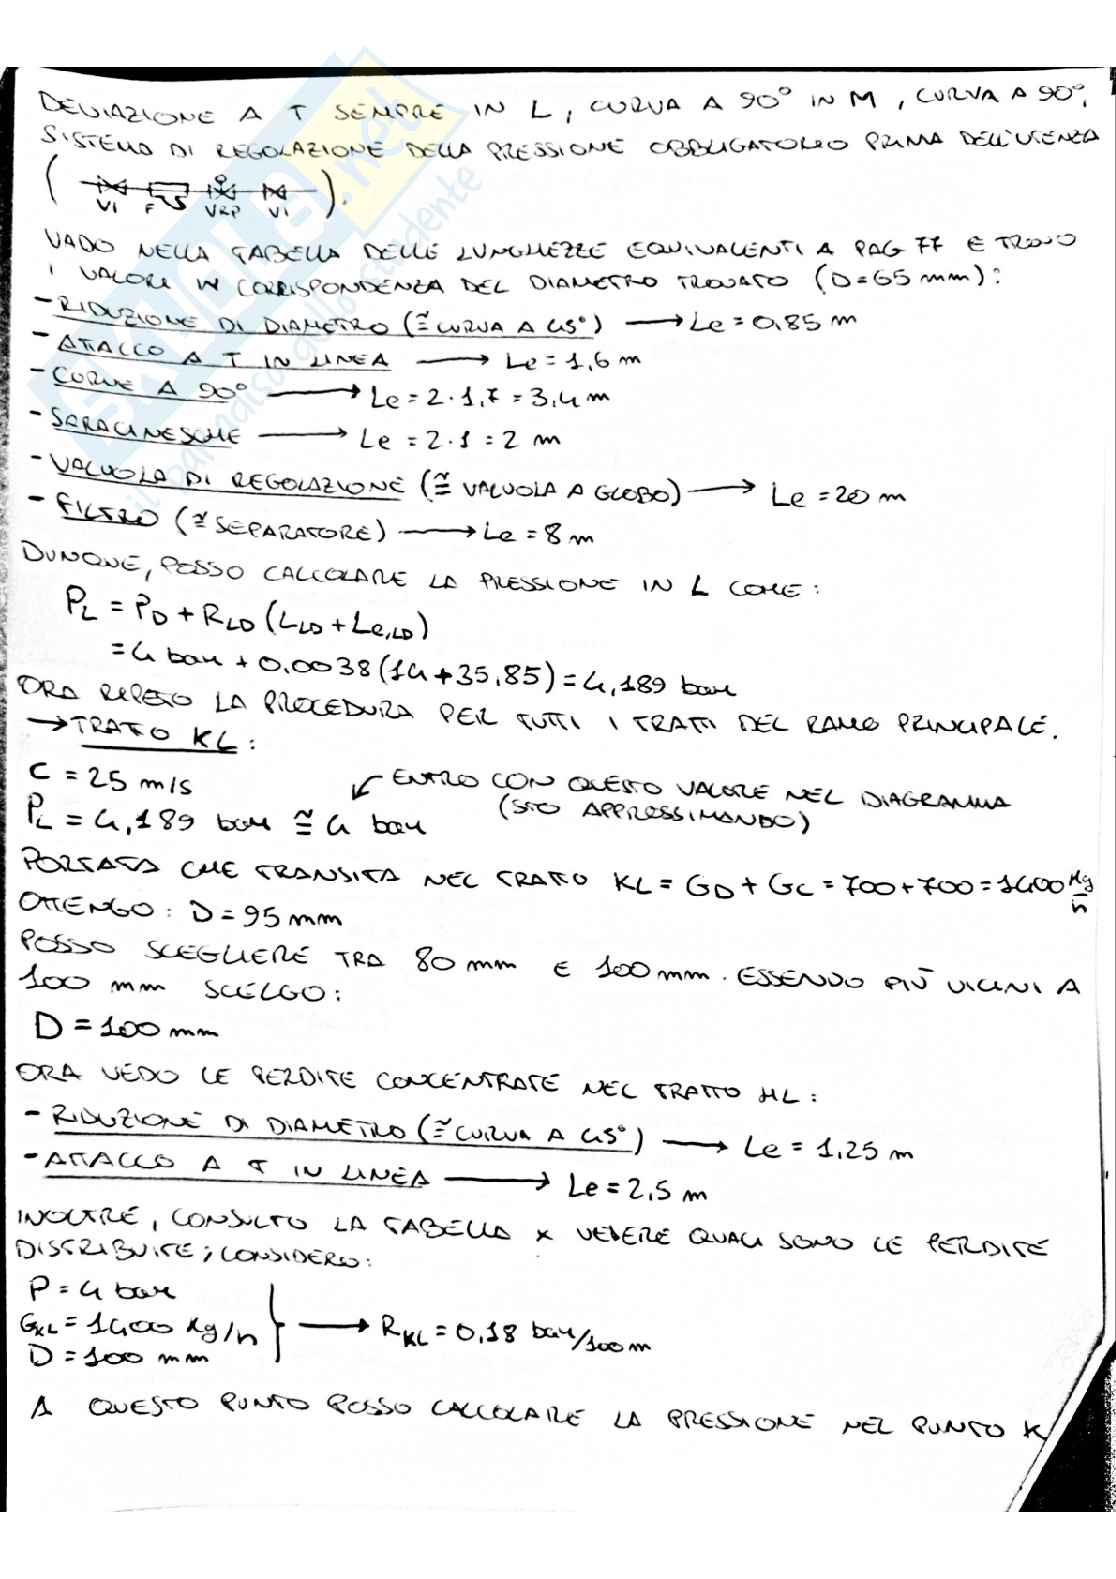 DEVIAZIONE A T SEMPRE IN L, CURVA A 90° IN M, CURVA A 90°,
SISTEMA DI REGOLAZIONE DELLA PRESSIONE OBBLIGATORIO PRIMA DELL'UTENZA
( VI F VRP VI ).
VADO NELLA TABELLA DELLE LUNGHEZZE EQUIVALENTI A PAG 77 E TROVO
I VALORI IN CORRISPONDENZA DEL DIAMETRO TROVATO (D=65 mm):
- RIDUZIONE DI DIAMETRO (≅ CURVA A 45°) → Le = 0,85 m
- ATTACCO A T IN LINEA → Le = 1,6 m
- CURVE A 90° → Le = 2·1,7 = 3,4 m
- SARACINESCHE → Le = 2·1 = 2 m
- VALVOLA DI REGOLAZIONE (≅ VALVOLA A GLOBO) → Le = 20 m
- FILTRO (≅ SEPARATORE) → Le = 8 m
DUNQUE, POSSO CALCOLARE LA PRESSIONE IN L COME:
P_L = P_D + R_LD (L_LD + Le,LD)
= 4 bar + 0.0038 (14 + 35,85) = 4,189 bar
ORA RIPETO LA PROCEDURA PER TUTTI I TRATTI DEL RAMO PRINCIPALE.
→ TRATTO KL:
C = 25 m/s
↙ ENTRO CON QUESTO VALORE NEL DIAGRAMMA
(STO APPROSSIMANDO)
P_L = 4,189 bar ≅ 4 bar
PORTATA CHE TRANSITA NEL TRATTO KL = G_D + G_C = 700 + 700 = 1400 Kg/h
OTTENGO: D = 95 mm
POSSO SCEGLIERE TRA 80 mm E 100 mm. ESSENDO PIÙ VICINI A
100 mm SCELGO:
D = 100 mm
ORA VEDO LE PERDITE CONCENTRATE NEL TRATTO KL:
- RIDUZIONE DI DIAMETRO (≅ CURVA A 45°) → Le = 1,25 m
- ATTACCO A T IN LINEA → Le = 2,5 m
INOLTRE, CONSULTO LA TABELLA X VEDERE QUALI SONO LE PERDITE
DISTRIBUITE; CONSIDERO:
P = 4 bar
G_KL = 1400 Kg/h } → R_KL = 0,18 bar/100 m
D = 100 mm
A QUESTO PUNTO POSSO CALCOLARE LA PRESSIONE NEL PUNTO K